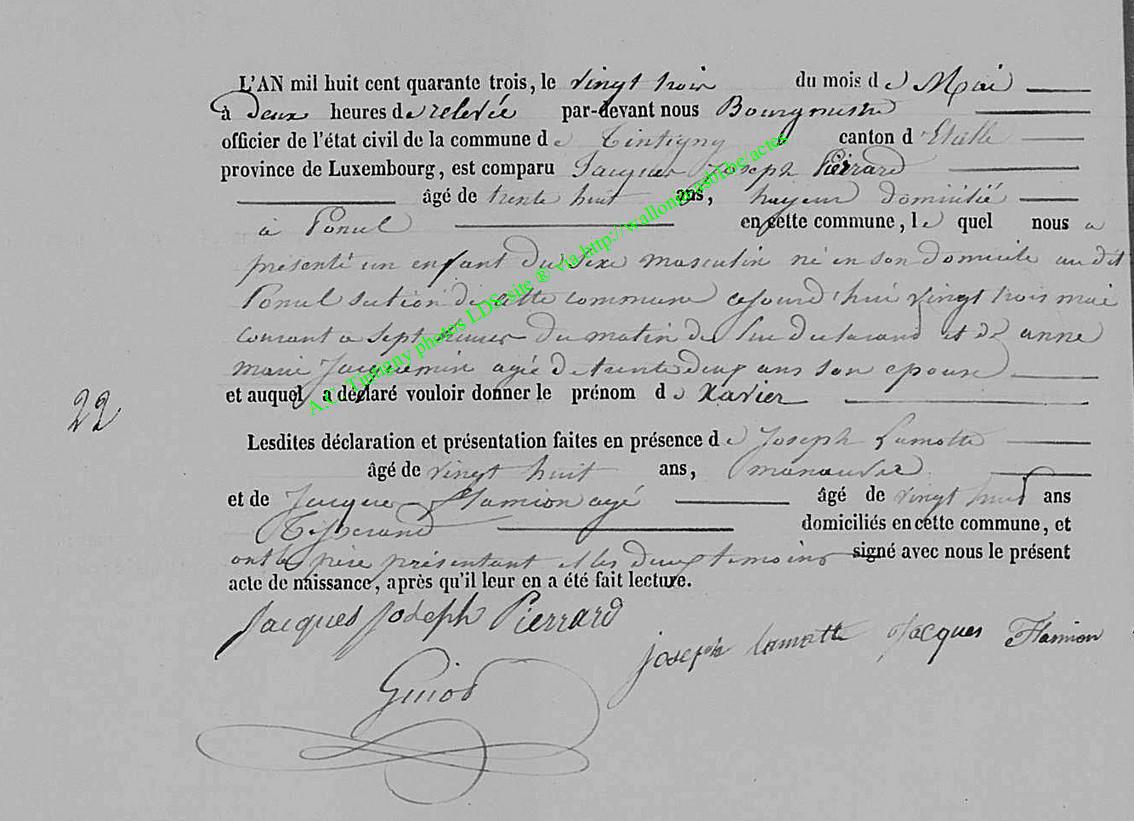 L'AN mil huit cent quarante trois, le vingt trois du mois de Mai
à deux heures de relevée par-devant nous Bourgmestre
officier de l'état civil de la commune de Tintigny canton d'Etalle
province de Luxembourg, est comparu Jacques Joseph Pierrard
âgé de trente huit ans, domicilié
à Ponul en cette commune, le quel nous a
présenté un enfant du sexe masculin né en son domicile au dit
Ponul section de cette commune cejourd'hui vingt trois mai
courant a sept heures du matin de lui declarant et de anne
marie Jacquemin agée de trente deux ans son epouse
et auquel a déclaré vouloir donner le prénom de Xavier
22
Lesdites déclaration et présentation faites en présence de Joseph Lamotte
âgé de vingt huit ans, manœuvre
et de Jacques Flamion agé âgé de vingt huit ans
Tisserand domiciliés en cette commune, et
ont le père présentant et les deux temoins signé avec nous le présent
acte de naissance, après qu'il leur en a été fait lecture.
Jacques Joseph Pierrard
Joseph Lamotte Jacques Flamion
A.C. Tintigny photos LDS site ® via http://wallonica.sbt.be/actes